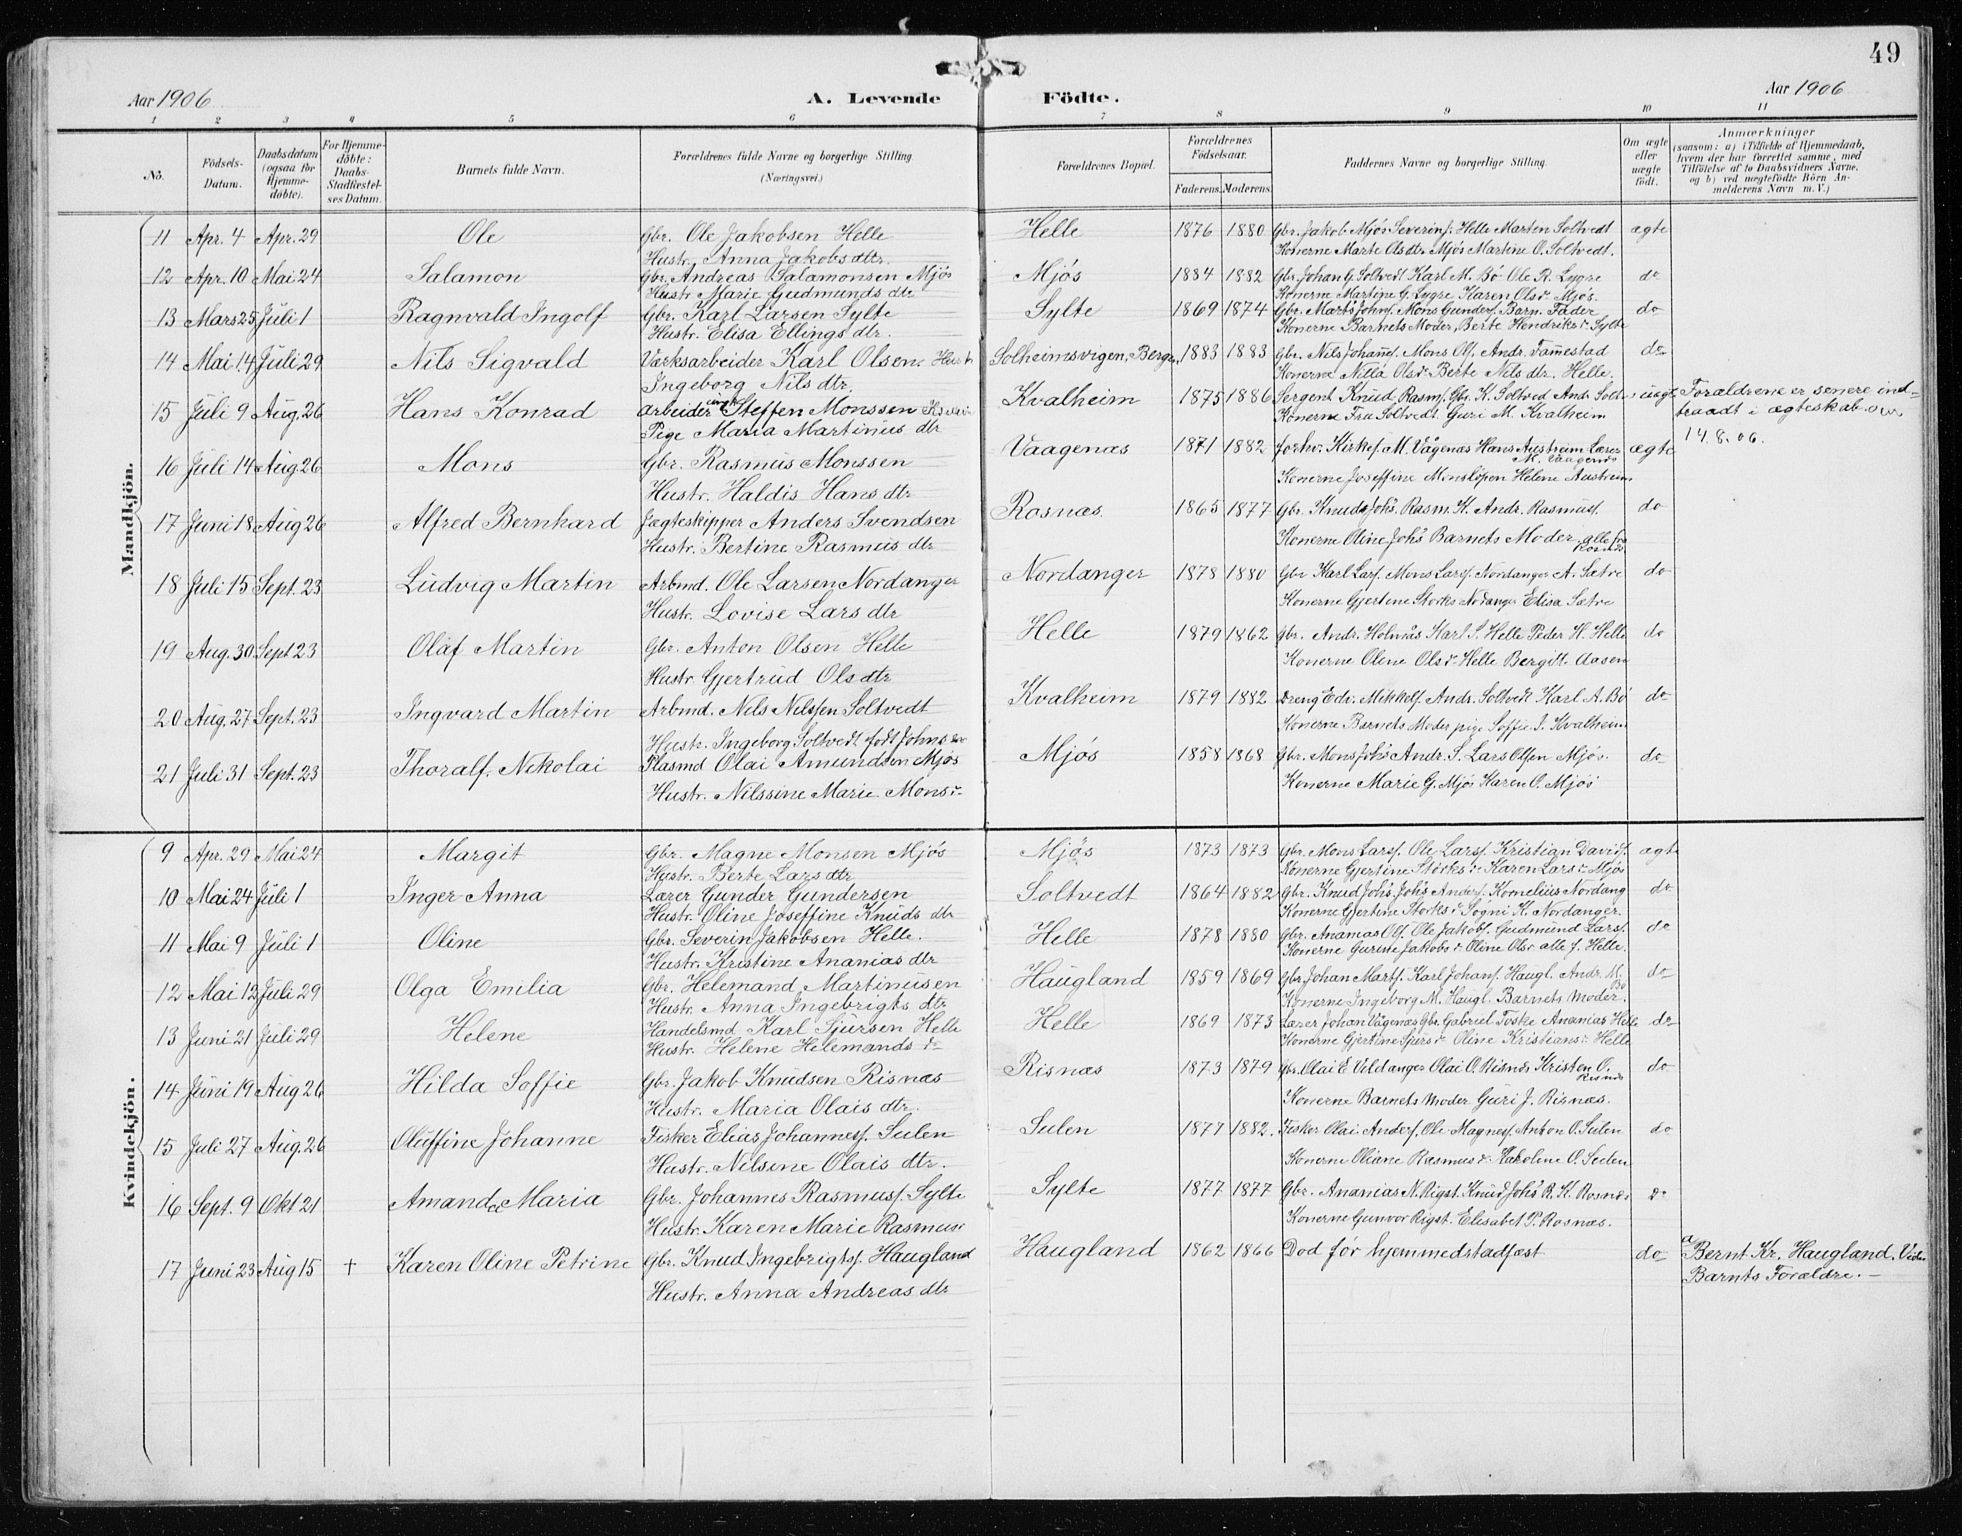 49
Aar 1906 A. Levende Födte. Aar 1906
1 2 3 4 5 6 7 8 9 10 11
No. Födsels-Datum. Daabsdatum (ogsaa for Hjemmedøbte). For Hjemmedøbte: Daabs-Stadfæstelses Datum. Barnets fulde Navn. Forældrenes fulde Navne og borgerlige Stilling (Næringsvei.) Forældrenes Bopæl. Forældrenes Födselsaar. Faderens. Moderens. Faddernes Navne og borgerlige Stilling. Om ægte eller uægte født. Anmærkninger (saasom: a) i Tilfælde af Hjemmedaab, hvem der har forrettet samme, med Tilföielse af to Daabsvidners Navne, og b) ved uægtefödte Börn Anmelderens Navn m. V.)
Mandkjön.
11 Apr. 4 Apr. 29 Ole Gbr. Ole Jakobsen Helle Helle 1876 1880 Gbr. Jakob Mjøs Severin J. Helle Marten Soltvedt ægte
Hustr. Anna Jakobs dtr. Konerne Marte Olsdtr Mjøs Martine O. Soltvedt.
12 Apr. 10 Mai 24 Salamon Gbr. Andreas Salamonsen Mjös Mjøs 1884 1882 Gbr. Johan G. Soltvedt Karl M. Bö Ole R. Lygre do
Hustr. Marie Gudmunds dtr Konerne Martine G. Lygre Karen Olsdr Mjøs.
13 Mars 25 Juli 1 Ragnvald Ingolf Gbr. Karl Larsen Sylte Sylte 1869 1874 Gbr. Mons Gunders. Barn. Fader do
Hustr. Elisa Ellings dtr Konerne Barnets Moder, Berte Hendriks dr Sylte
14 Mai 14 Juli 29 Nils Sigvald Værksarbeider Karl Olsen. Hustr Solheimsvigen, Bergen 1883 1883 Gbr. Nils Johans. Mons Ols. Andr. Tamestad do
Ingeborg Nils dtr. Konerne Nilla Olsdr Berte Nils dtr. Helle.
15 Juli 9 Aug. 26 Hans Konrad Arbeider ungk. Steffen Monssen Kvalheim 1875 1886 Sergent Knud Rasm. Gbr. K. Soltved Andr. Soltv. uægt. Forældrene er senere ind-
Pige Maria Martinus dtr Konerne Fru Soltvedt Guri M. Kvalheim traadt i ægteskab.
14.8.06.
16 Juli 14 Aug. 26 Mons Gbr. Rasmus Monssen Vaagenæs 1871 1882 Kirkes. M. Vågenæs Hans Austreim Lærer M. Vaagenæs ægte
Hustr. Haldis Hans dtr Konerne Joseffine Helene Austreim
17 Juni 18 Aug 26 Alfred Bernhard Jægteskipper Anders Svendsen Rosnæs 1865 1877 Gbr. Knud Johs. Rasm. K. Andr. Rasmuss. do
Hustr. Bertine Rasmus dtr Konerne Oline Johs Barnets Moder alle fra Rosnæs
18 Juli 15 Sept. 23 Ludvig Martin Arbmd. Ole Larsen Nordanger Nordanger 1878 1880 Gbr Karl Lars. Mons Larss. Nordanger A. Sætre do
Hustr. Lovise Lars dtr Konerne Gjertine Storks Nordanger Elisa Sætre
19 Aug. 30 Sept 23 Olaf Martin Gbr. Anton Olsen Helle Helle 1879 1862 Gbr. Andr. Holmås Karl S. Helle Peder H. Helle do
Hustr Gjertrud Ols dtr Konerne Oline Olsdr Helle Bergitt. Aasen
20 Aug. 27 Sept. 23 Ingvard Martin Arbmd. Nils Nilssen Soltvedt Kvalheim 1879 1882 Dreng Edv. Mikkels. Andr. Soltvedt Karl A. Bö do
Hustr. Ingeborg Soltvedt født Johns Konerne Barnets Moder pige Soffie J. Kvalheim
21 Juli 31 Sept. 23 Thoralf Nikolai Plasmd Olai Amundsen Mjös Mjös 1858 1868 Gbr. Mons Johs Andr. S. Lars Olsen Mjös. do
Hustr. Nilssine Marie Mons dr Konerne Marie G. Mjös Karen O. Mjös
Kvindekjön.
9 Apr. 29 Mai 24 Margit Gbr. Magne Monsen Mjös Mjøs 1873 1873 Gbr. Mons Lars. Ole Lars. Kristian Davids. ægte
Hustr. Berte Lars dtr Konerne Gjertine Storks dr Karen Lars dr Mjös
10 Mai 24 Juli 1 Inger Anna Lærer Gunder Gundersen Soltvedt 1864 1882 Gbr. Knud Johs. Johs Anders. Kornelius Nordang do
Hustr. Oline Joseffine Knuds dtr Konerne Gjertine Storks dr Sögni K. Nordanger.
11 Mai 9 Juli 1 Oline Gbr. Severin Jakobsen Helle. Helle 1878 1880 Gbr. Ananias Ols. Ole Jakobs. Gudmund Lars. do
Hustr. Kristine Ananias dtr Konerne Guriste Jakobs dr Oline Olsdr alle f. Helle.
12 Mai 12 Juli 29 Olga Emilia Gbr. Helemand Martinusen Haugland 1859 1869 Gbr Johan Marts. Karl Johans. Haugl. Andr. M. Bö do
Hustr. Anna Ingebrigts dtr Konerne Ingeborg M. Haugl. Barnets Moder.
13 Juni 21 Juli 29 Helene Handelsmd Karl Sjursen Helle Helle 1869 1873 Lærer Johan Vågenæs Gbr. Gabriel Toske Ananias Helle do
Hustr. Helene Helemands dr Konerne Gjertine Sjurs dr Oline Kristians dr Helle
14 Juni 19 Aug 26 Hilda Soffie Gbr. Jakob Knudsen Risnæs Risnæs 1873 1879 Gbr. Olai E Vildanger Olai O. Risnæs Kristen O. Risnæs do
Hustr. Maria Olais dtr. Konerne Barnets Moder Guri J. Risnæs.
15 Juli 27 Aug. 26 Oluffine Johanne Fisker Elias Johanness. Sulen Sulen 1877 1882. Fisker Olai Anders. Ole Magnes. Anton O. Sulen do
Hustr. Nilsine Olais dtr. Konerne Oliane Rasmus dr Karoline O. Sulen
16 Sept. 9 Okt 21 Amanda Maria Gbr. Johannes Rasmuss. Sylte Sylte 1877 1877 Gbr. Ananias N. Rigst. Knud Johs R. K. Rosnæs do
Hustr. Karen Marie Rasmus Konerne Gunvor Rigst. Elisabet P. Rosnæs.
17 Juni 23 Aug 15 † Karen Oline Petrine Gbr. Knud Ingebrigts. Haugland Haugland 1862 1866 Dod før hjemmedstadfæst do a Bernt Kr. Haugland. Vid.
Hustr. Anna Andreas dtr Barnts Forældre. —